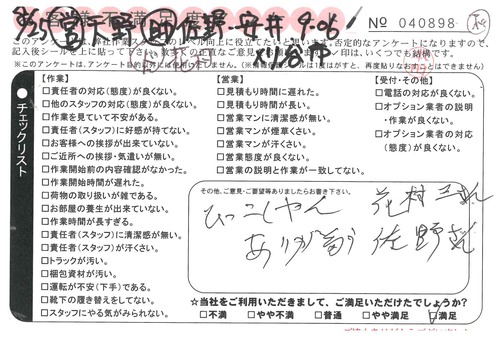 9/5 営 天野 佐野 安井 9-06
№ 040898
このアンケートは、今後の作業スタッフのレベル向上に役立てたいと思います。否定的なアンケートになりますので、
記入後シールを上に貼って下さい。
※このアンケートは、アンケート目的以外には使用しません。
チェックリスト
【作業】
□責任者の対応(態度)が良くない。
□他のスタッフの対応(態度)が良くない。
□作業を見ていて不安がある。
□責任者(スタッフ)に好感が持てない。
□お客様への挨拶が出来ていない。
□ご近所への挨拶・気遣いが無い。
□作業開始前の内容確認がなかった。
□作業開始時間が遅れた。
□荷物の取り扱いが雑である。
□お部屋の養生が出来ていない。
□作業時間が長すぎる。
□責任者(スタッフ)に清潔感が無い。
□責任者(スタッフ)が汗くさい。
□トラックが汚い。
□梱包資材が汚い。
□運転が不安(下手)である。
□靴下の履き替えをしてない。
□スタッフにやる気がみられない。
【営業】
□見積もり時間に遅れた。
□見積もり時間が長い。
□営業マンに清潔感が無い。
□営業マンが煙草くさい。
□営業マンが汗くさい。
□営業態度が良くない。
□営業の説明と作業が一致してない。
【受付・その他】
□電話の対応が良くない。
□オプション業者の説明
・作業が良くない。
□オプション業者の対応
(態度)が良くない。
その他、ご意見・ご要望等ありましたらお書き下さい。
ひっこしやん 花村
ありがとう 佐野
☆当社をご利用いただきまして、ご満足いただけたでしょうか?
□不満 □やや不満 □普通 □やや満足 □満足